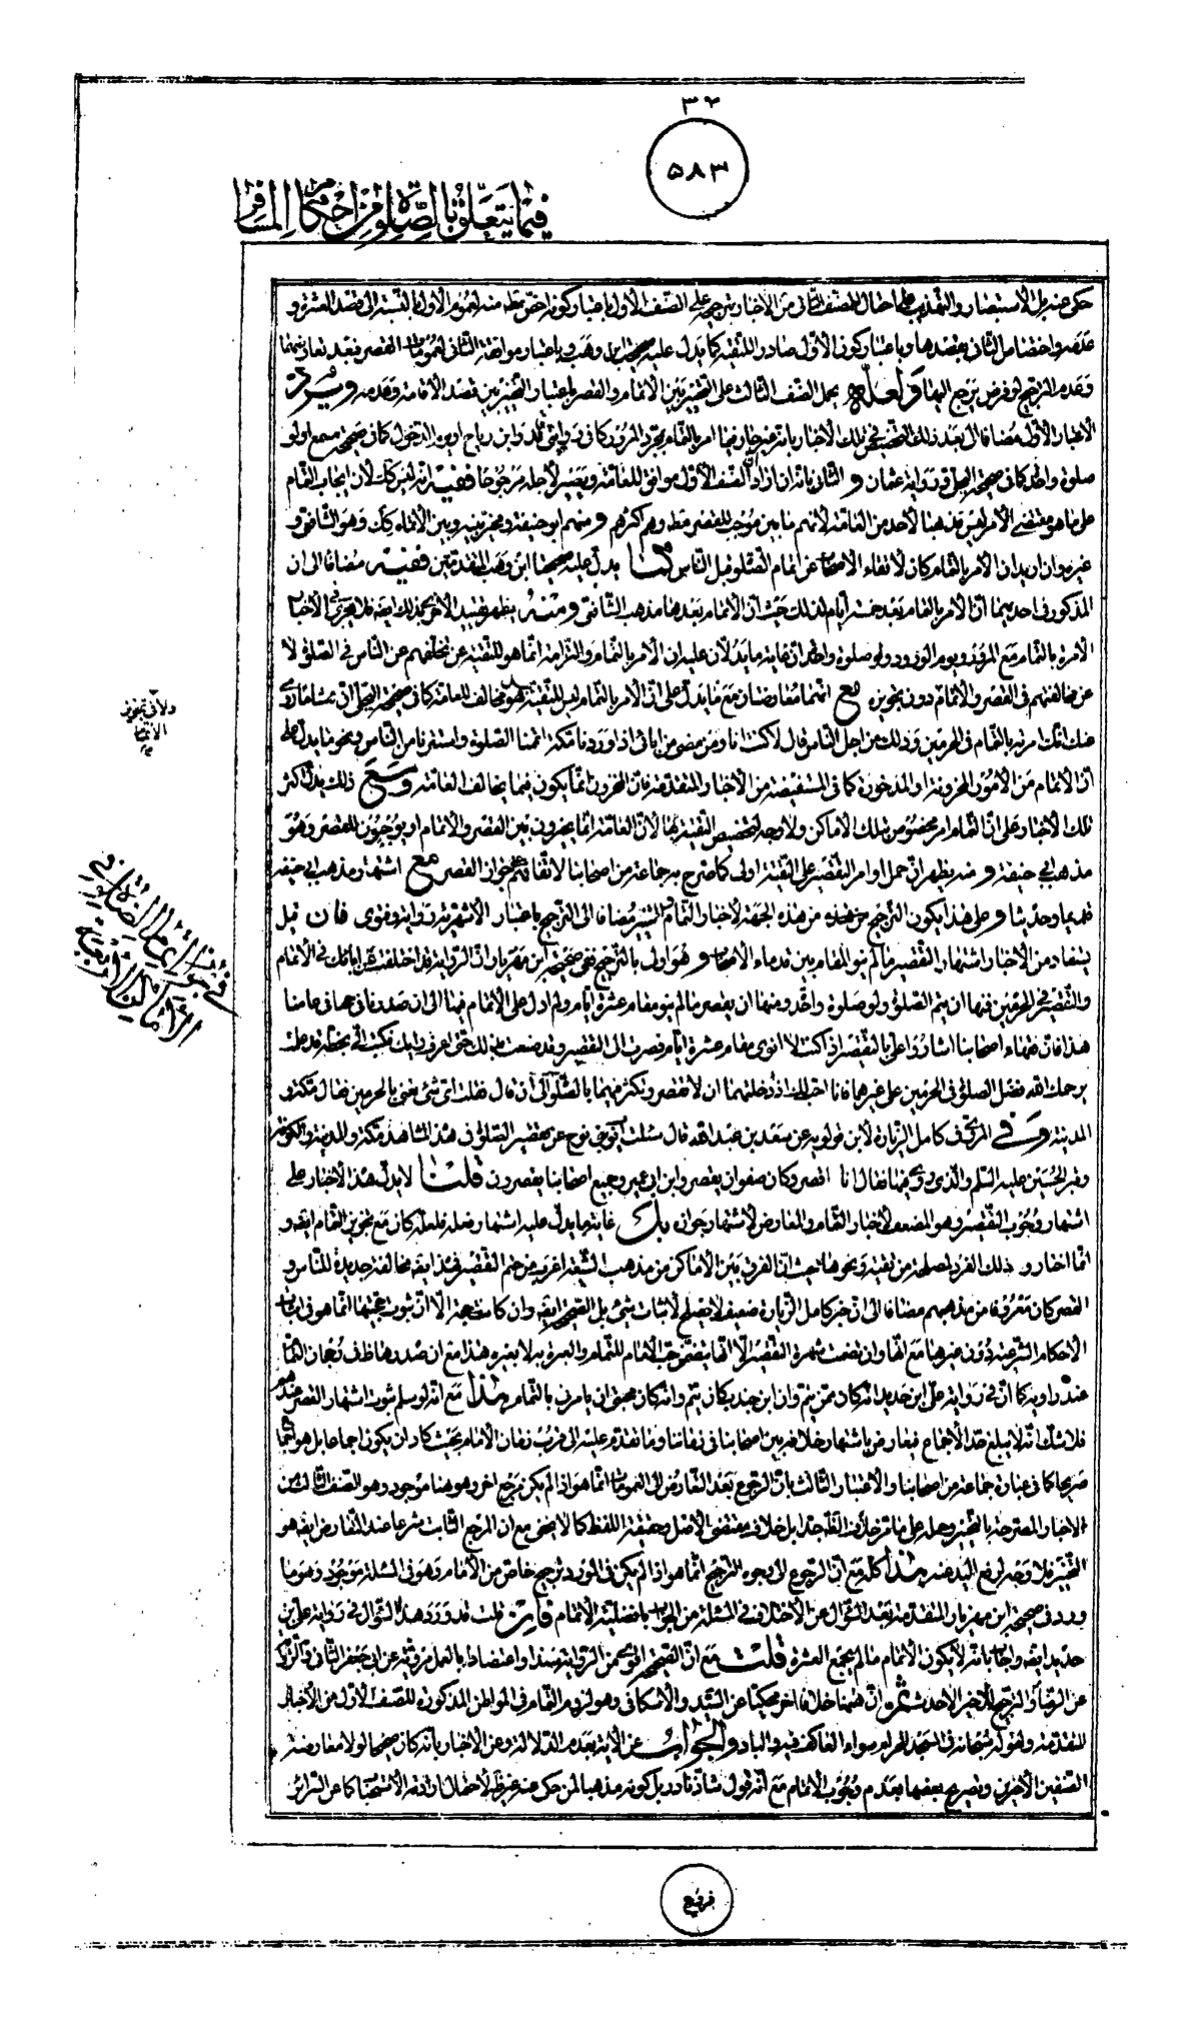 ٣٢
٥٨٣
فيما يتعلق بالصلوة من احكام المسافر
حكى عنه في الاستبصار والتهذيب على احتمال الصنف الثاني من الاخبار بترجيحه على الصنف الاول باعتبار كونه اخص مطلقا منه لعموم الاول بالنسبة الى قصد العشرة و
عدمه واختصاص الثاني بعدمها وباعتبار كون الاول صادرا للتقية كما يدل عليه صحيحتا ابن وهب وباعتبار موافقة الثاني لعمومات القصر فبعد تعارضهما
وعدم الترجيح لو فرض يرجع اليها ولعله يحمل الصنف الثالث على التخيير بين الاتمام والقصر باعتبار التخيير بين قصد الاقامة وعدمه ويرد
الاعتبار الاول مضافا الى بعد ذلك التخصيص في تلك الاخبار بانه غير جار فيما امر بالتمام بمجرد المرور كما في روايتي قائد وابن رياح او يوم الدخول كما في صحيحة مسمع او لو
صلوة واحدة كما في صحيحة البجلي ورواية عثمان والثاني بانه ان اراد ان الصنف الاول موافق للعامة ويصير لاجله مرجوحا ففيه انه ليس كك لان ايجاب التمام
على ما هو مقتضى الامر ليس مذهبا لاحد من العامة لانهم ما بين موجب للقصر مطلقا وهم اكثرهم ومنهم ابو حنيفة ومخير بينه وبين الاتمام كك وهو الشافعي و
غيره وان اريد ان الامر بالتمام كان لاتقاء الاصحاب عن اتمام الصلوة قبل الناس كما يدل عليه صحيحتا ابن وهب المتقدمتين ففيه مضافا الى ان
المذكور في احديهما ان الامر بالتمام بعد خمسة ايام لذلك حيث ان الاتمام بعدها مذهب الشافعي ومنه يظهر تقييد الاخرى بذلك ايضا فلا يجري في الاخبار
الامرة بالتمام مع المرور ويوم الورود ولو صلوة واحدة ان غاية ما يدلان عليه ان الامر بالتمام والتزامه انما هو للتقية عن تخلفهم عن الناس في الصلوة لا
عن مخالفتهم في القصر والاتمام دون تجويزه مع انهما متعارضان مع ما يدل على ان الامر بالتمام ليس للتقية بل هو مخالف للعامة كما في صحيحة البجلي ان هشاما روى
عنك انك امرته بالتمام في الحرمين وذلك من اجل الناس قال لا كنت انا ومن مضى من ابائي اذا وردنا مكة اتممنا الصلوة واستترنا من الناس ونحوها يدل على
ان الاتمام من الامور المخزونة او المذخورة كما في المستفيضة من الاخبار المتقدمة فان المخزون انما يكون فيما يخالف العامة ومع ذلك يدل اكثر
تلك الاخبار على ان التمام امر مخصوص بتلك الاماكن ولا وجه لتخصيص التقية بها لان العامة انما يخيرون بين القصر والاتمام او يوجبون للقصر وهو
مذهب ابي حنيفة ومنه يظهر ان حمل اوامر التقصير على التقية اولى كما صرح به جماعة من اصحابنا لاتفاقهم على جواز القصر مع اشتهار مذهب ابي حنيفة
قديما وحديثا وعلى هذا يكون الترجيح من هذه الجهة لاخبار التمام والتخيير مضافا الى الترجيح باعتبار الاشهرية رواية وفتوى فان قيل
يستفاد من الاخبار اشتهار القصر ما لم ينو المقام بين قدماء الاصحاب وهو اولى بالترجيح ففي صحيحة ابن مهزيار ان الرواية قد اختلفت عن ابائك في الاتمام
والتقصير في الحرمين فمنها ان يتم الصلوة ولو صلوة واحدة ومنها ان يقصر ما لم ينو مقام عشرة ايام ولم ازل على الاتمام فيها الى ان صدرنا في حجنا في عامنا
هذا فان فقهاء اصحابنا اشاروا علي بالتقصير اذ كنت لا انوي مقام عشرة ايام فصرت الى التقصير وقد ضقت بذلك حتى اعرف رايك فكتب الي بخطه قد علمت
يرحمك الله فضل الصلوة في الحرمين على غيرهما فانا احب لك اذا دخلتهما ان لا تقصر وتكثر فيهما بالصلوة الى ان قال فقلت اي شيء تعني بالحرمين فقال مكة و
المدينة وفي المروي في كامل الزيارة لابن قولويه عن سعد بن عبد الله قال سئلت ايوب بن نوح عن تقصير الصلوة في هذه المشاهد مكة والمدينة والكوفة
وقبر الحسين عليه السلم والذي روي فيها فقال انا اقصر وكان صفوان يقصر وابن ابي عمير وجميع اصحابنا يقصرون قلنا لا يدل هذا الاخبار على
اشتهار وجوب التقصير وهو المضعف لاخبار التمام والمعارض لاشتهار جوازه بل غاية ما يدل عليه اشتهار فعله فلعله كان مع تجويز التمام ايضا و
انما اختاروا ذلك الفرد لمصلحة من تقية ونحوها حيث ان الفرق بين الاماكن من مذهب الشيعة اغرب من حتم القصر فهذا ايضا مخالفة جديدة للناس و
القصر كان معروفا من مذهبهم مضافا الى ان خبر كامل الزيارة ضعيف لا يصلح لاثبات شيء بل الصحيحة ايضا وان كانت حجة الا ان ثبوت حجيتها انما هو في اثبات
الاحكام الشرعية دون غيرها مع انها وان تضمنت شهرة التقصير الا انها يتضمن حب الامام للتمام والعبرة به لا بغيره هذا مع ان صدرها ظاهر في رجحان التمام
عند راويه كما ان في رواية علي بن حديد انه كان ممن يتم وان ابن جندب كان يتم وانه كان محبتي ان يامرني بالتمام هذا مع انه لو سلم ثبوت اشتهار القصر عندهم
فلا شك انه لا يبلغ حد الاجماع فيعارض باشتهار خلافه بين اصحابنا في زماننا وما تقدم عليه الى قرب زمان الامام بحيث كاد ان يكون اجماعا بل هو اجماع
صريحا كما في عبارة جماعة من اصحابنا والاعتبار الثالث بان الرجوع بعد التعارض الى العمومات انما هو اذا لم يكن مرجع اخر وهو هنا موجود وهو الصنف الثالث من
الاخبار المصرحة بالتخيير وحمله على ما مر خلاف الظاهر جدا بل خلاف مقتضى الاصل وحقيقة اللفظ كما لا يخفى مع ان المرجع الثابت شرعا عند التعارض ايضا هو
التخيير فلا وجه لرفع اليد عنه هذا كله مع ان الرجوع الى وجوه الترجيح انما هو اذا لم يكن في المورد ترجيح خاص من الامام وهو في المسئلة موجود وهو ما
ورد في صحيحة ابن مهزيار المتقدمة بعد السؤال عن الاختلاف في المسئلة من الجواب بافضلية الاتمام فان قلت قد ورد هذا السؤال في رواية علي بن
حديد ايضا واجاب بانه لا يكون الاتمام ما لم يجمع العشرة قلت مع ان الصحيحة اقوى من الرواية سندا واعتضادا بالعمل مروية عن ابي جعفر الثاني والرواية
عن الرضا والترجيح للاخير الاحدث ثم ان ههنا خلافا اخر محكيا عن السيد والاسكافي وهو لزوم التمام في المواطن المذكورة للصنف الاول من الاخبار
المتقدمة ولقوله سبحانه في المسجد الحرام سواء العاكف فيه والباد والجواب عن الاية بعدم الدلالة وعن الاخبار بانه كان صحيحا لولا معارضة
الصنفين الاخرين وتصريح بعضها بعدم وجوب الاتمام مع انه قول شاذ نادر بل كونه مذهبا لمن حكى عنه غير ظاهر لاحتمال ارادته الاستحباب كما عن السرائر
ولا في تجويز
الاتمام
في جواز اتمام الصلوة في
الاماكن الاربعة
فروع